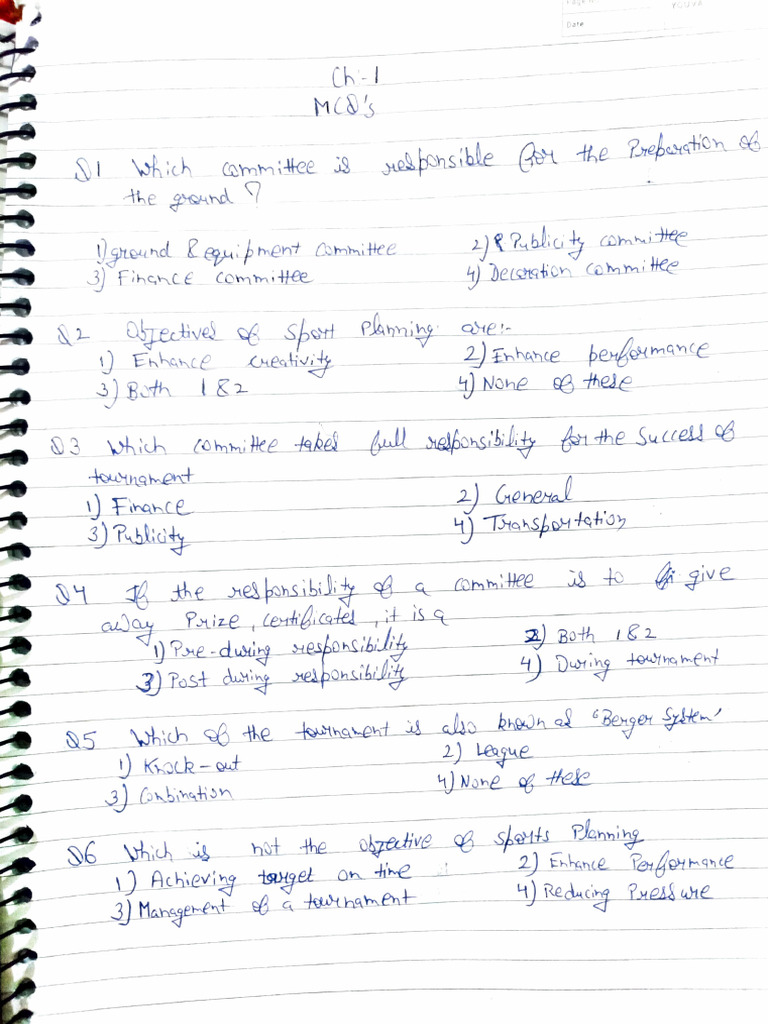 Date
Ch:-1
MCQ's
Q1 Which committee is responsible for the Preparation of
the ground?
1) ground & equipment committee 2) Publicity committee
3) Finance committee 4) Decoration committee
Q2 Objectives of Sport Planning are:-
1) Enhance creativity 2) Enhance performance
3) Both 1 & 2 4) None of these
Q3 Which committee takes full responsibility for the Success of
tournament
1) Finance 2) General
3) Publicity 4) Transportation
Q4 If the responsibility of a committee is to give
away Prize, certificates, it is a
1) Pre-during responsibility 2) Both 1 & 2
3) Post during responsibility 4) During tournament
Q5 Which of the tournament is also known as 'Berger System'
1) Knock-out 2) League
3) Conbination 4) None of these
Q6 Which is not the objective of sports Planning
1) Achieving target on time 2) Enhance Performance
3) Management of a tournament 4) Reducing Pressure